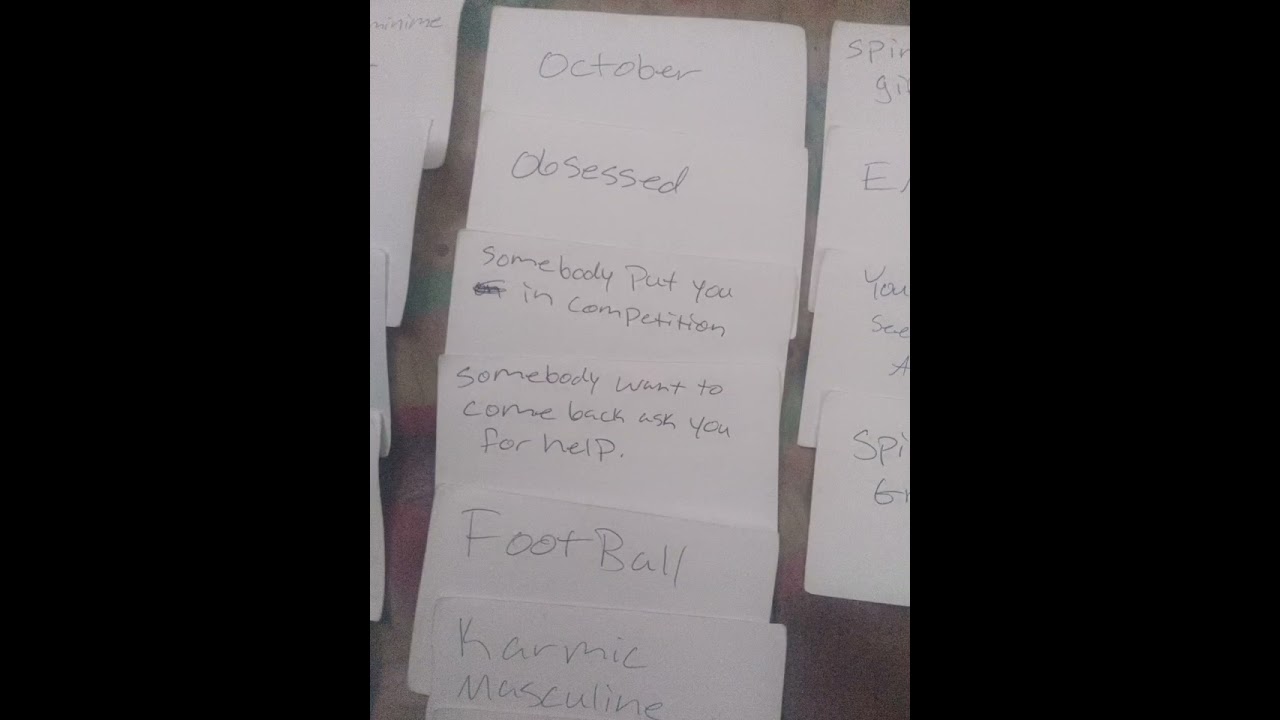 October
Obsessed
Somebody Put you
in competition
Somebody want to
come back ask you
for help.
FootBall
Karmic
Masculine
You